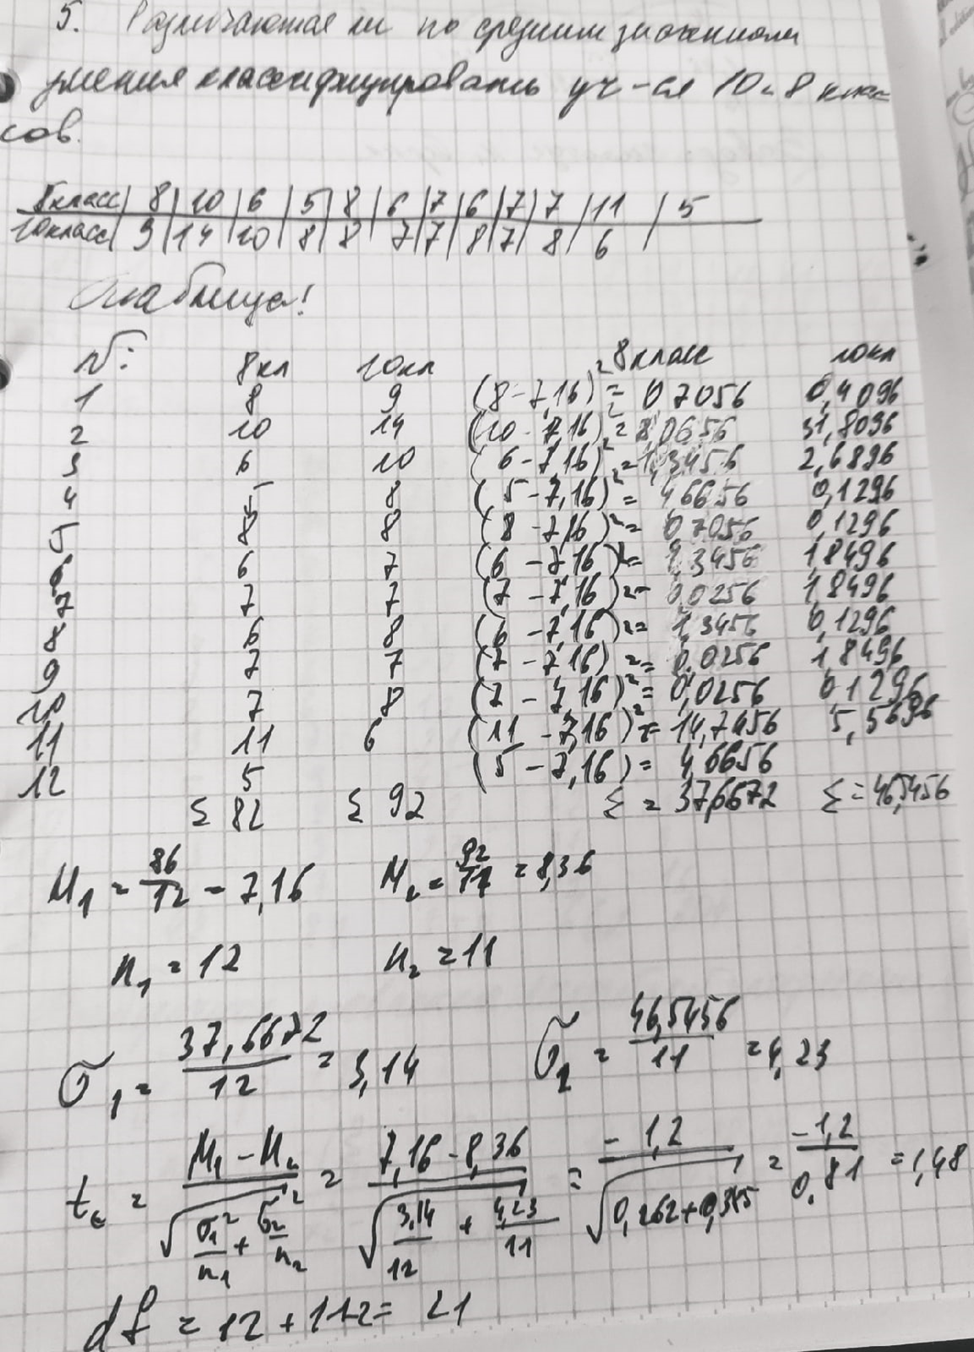 5. Различаются ли по средним значениям
умения классифицировать уч-ся 10 и 8 клас
сов.
8класс| 8| 10 | 6 | 5| 8 | 6 |7 |6 |7| 7 | 11 | 5
10класс| 9 |14 | 10 | 8 | 8 | 7|7 | 8|7 | 8 | 6
таблица!
N: 8кл 10кл 8класс 10кл
1 8 9 (8-7,16)²= 0,7056 0,4096
2 10 14 (10-7,16)²= 8,0656 31,8096
3 6 10 (6-7,16)²= 1,3456 2,6896
4 5 8 (5-7,16)²= 4,6656 0,1296
5 8 8 (8-7,16)²= 0,7056 0,1296
6 6 7 (6-7,16)²= 1,3456 1,8496
7 7 7 (7-7,16)²= 0,0256 1,8496
8 6 8 (6-7,16)²= 1,3456 0,1296
9 7 7 (7-7,16)²= 0,0256 1,8496
10 7 8 (7-7,16)²= 0,0256 0,1296
11 11 6 (11-7,16)²= 14,7456 5,5696
12 5 (5-7,16)= 4,6656
Σ 82 Σ 92 Σ = 37,6672 Σ = 46,5456
M₁ = 86/12 = 7,16 M₂ = 92/11 = 8,36
n₁ = 12 n₂ = 11
σ₁ = 37,6672/12 = 3,14 σ₂ = 46,5456/11 = 4,23
tε = M₁ - M₂/√σ₁²/n₁ + σ₂²/n₂ = 7,16 - 8,36/√3,14/12 + 4,23/11 = -1,2/√0,262+0,385 = -1,2/0,81 = 1,48
df = 12 + 11-2 = 21